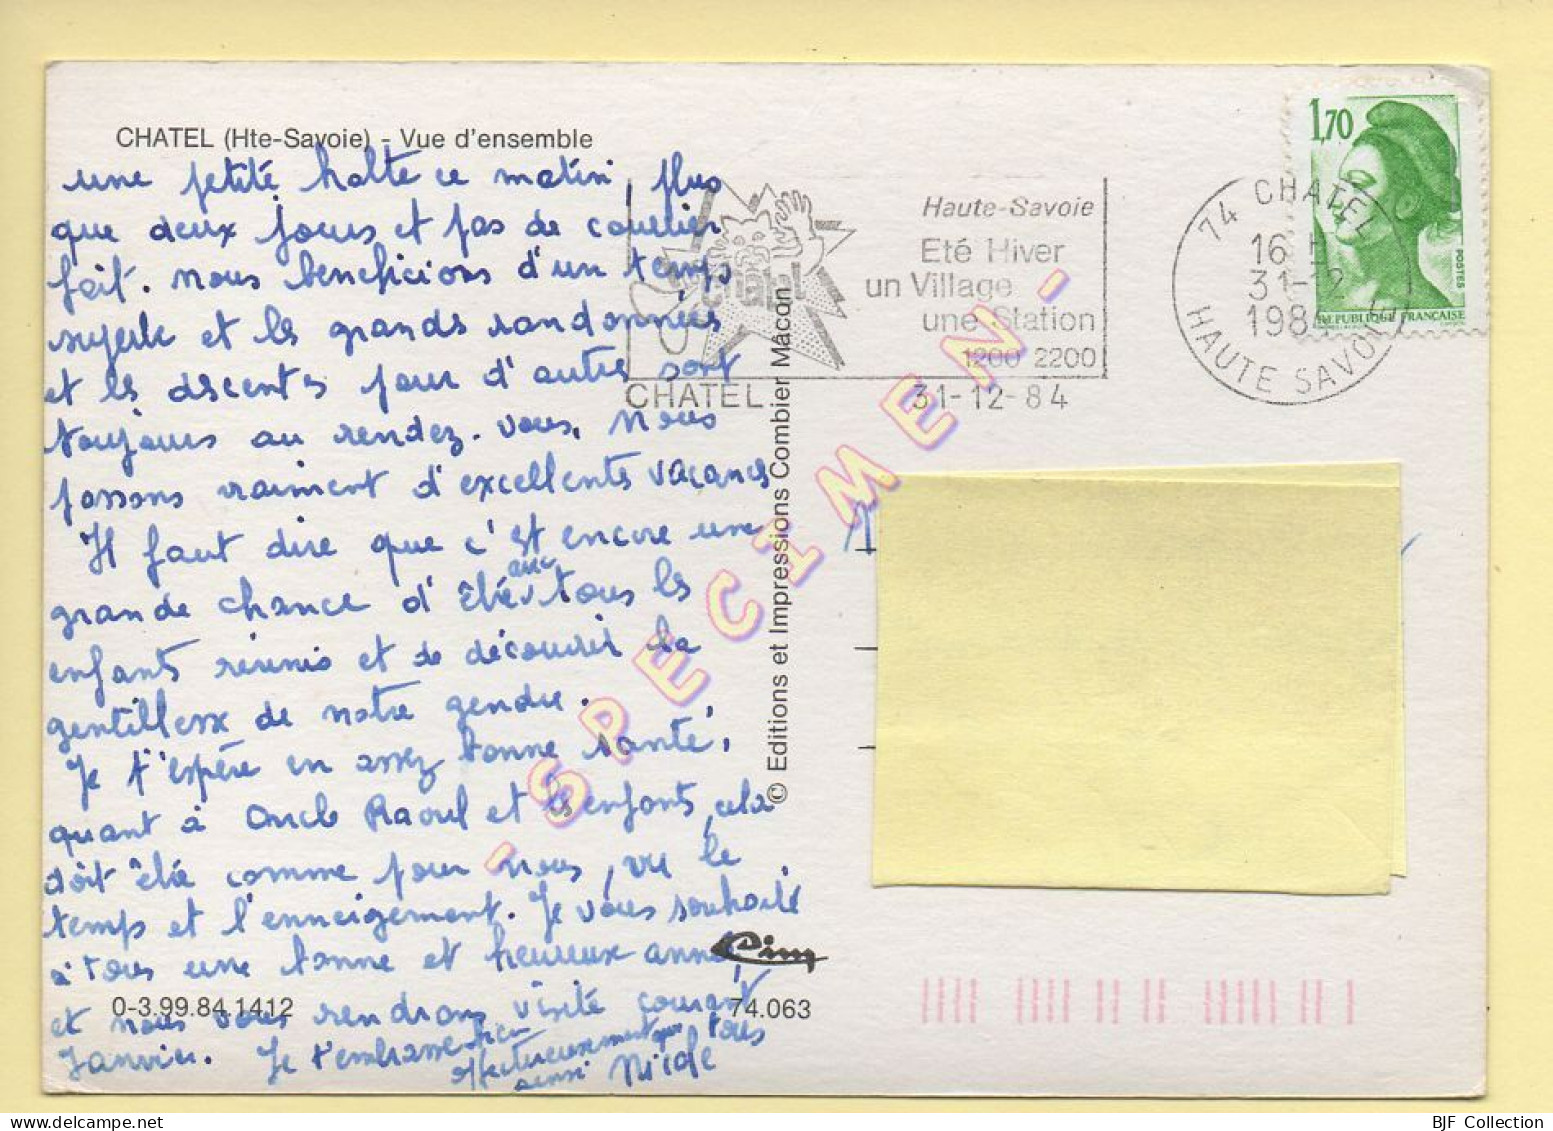 CHATEL (Hte-Savoie) - Vue d'ensemble
une petite halte ce matin, plus
que deux jours et pas de courrier
fait. Nous bénéficions d'un temps
superbe et les grandes randonnées
et les descentes pour d'autres sont
toujours au rendez-vous. Nous
passons vraiment d'excellentes vacances
Il faut dire que c'est encore une
grande chance d'être avec tous les
enfants réunis et de découvrir la
gentillesse de notre gendre.
Je t'espère en assez bonne santé,
quant à Oncle Raoul et les enfants, cela
doit être comme pour nous, vu le
temps et l'enneigement. Je vous souhaite
à tous une bonne et heureuse année,
et nous vous rendrons visite courant
Janvier. Je t'embrasse bien
affectueusement ainsi que tous
Nicole
0-3.99.84.1412
74.063
© Editions et Impressions Combier Mâcon
Cim
chatel
Haute-Savoie
Eté Hiver
un Village
une Station
1200 2200
CHATEL
31-12-84
74 CHATEL
16 H
31-12
1984
HAUTE SAVOIE
1,70
POSTES
REPUBLIQUE FRANÇAISE
- SPECIMEN -
BJF Collection